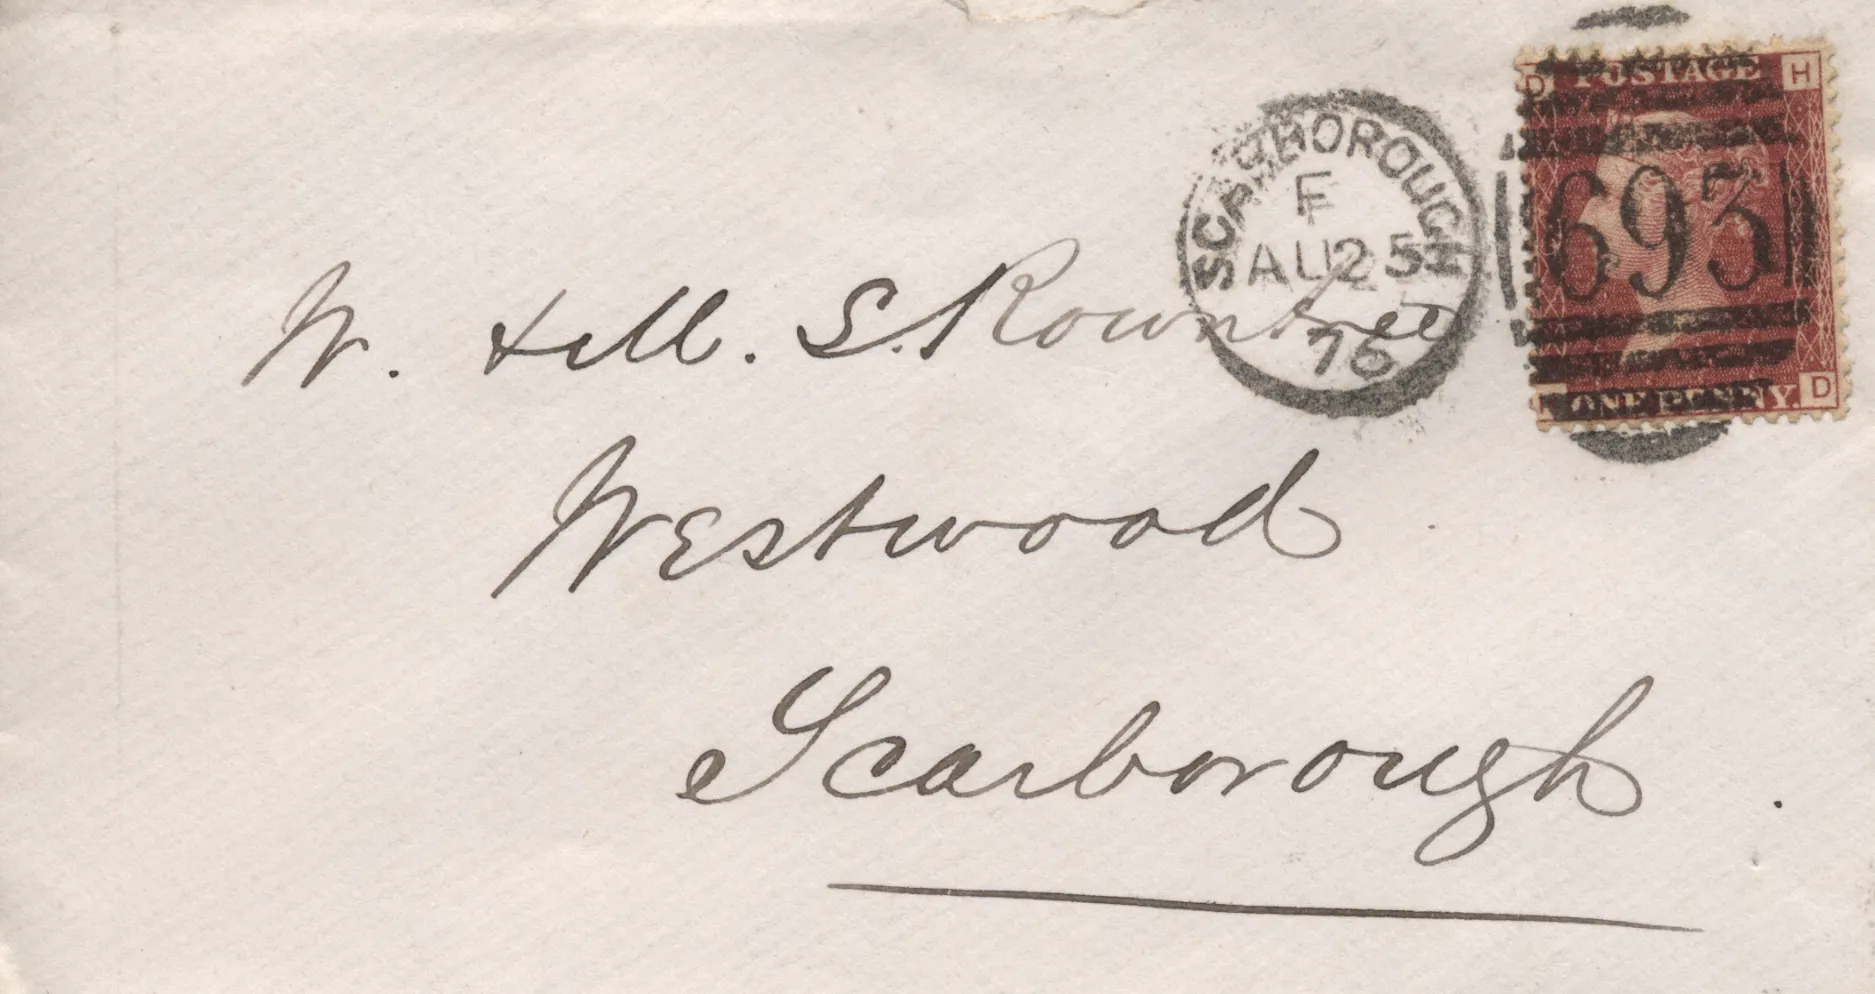 POSTAGE
D H
693
ONE PENNY.
D
SCARBOROUGH
F
AU 25
76
W. Hill. S. Rowntree
Westwood
Scarborough